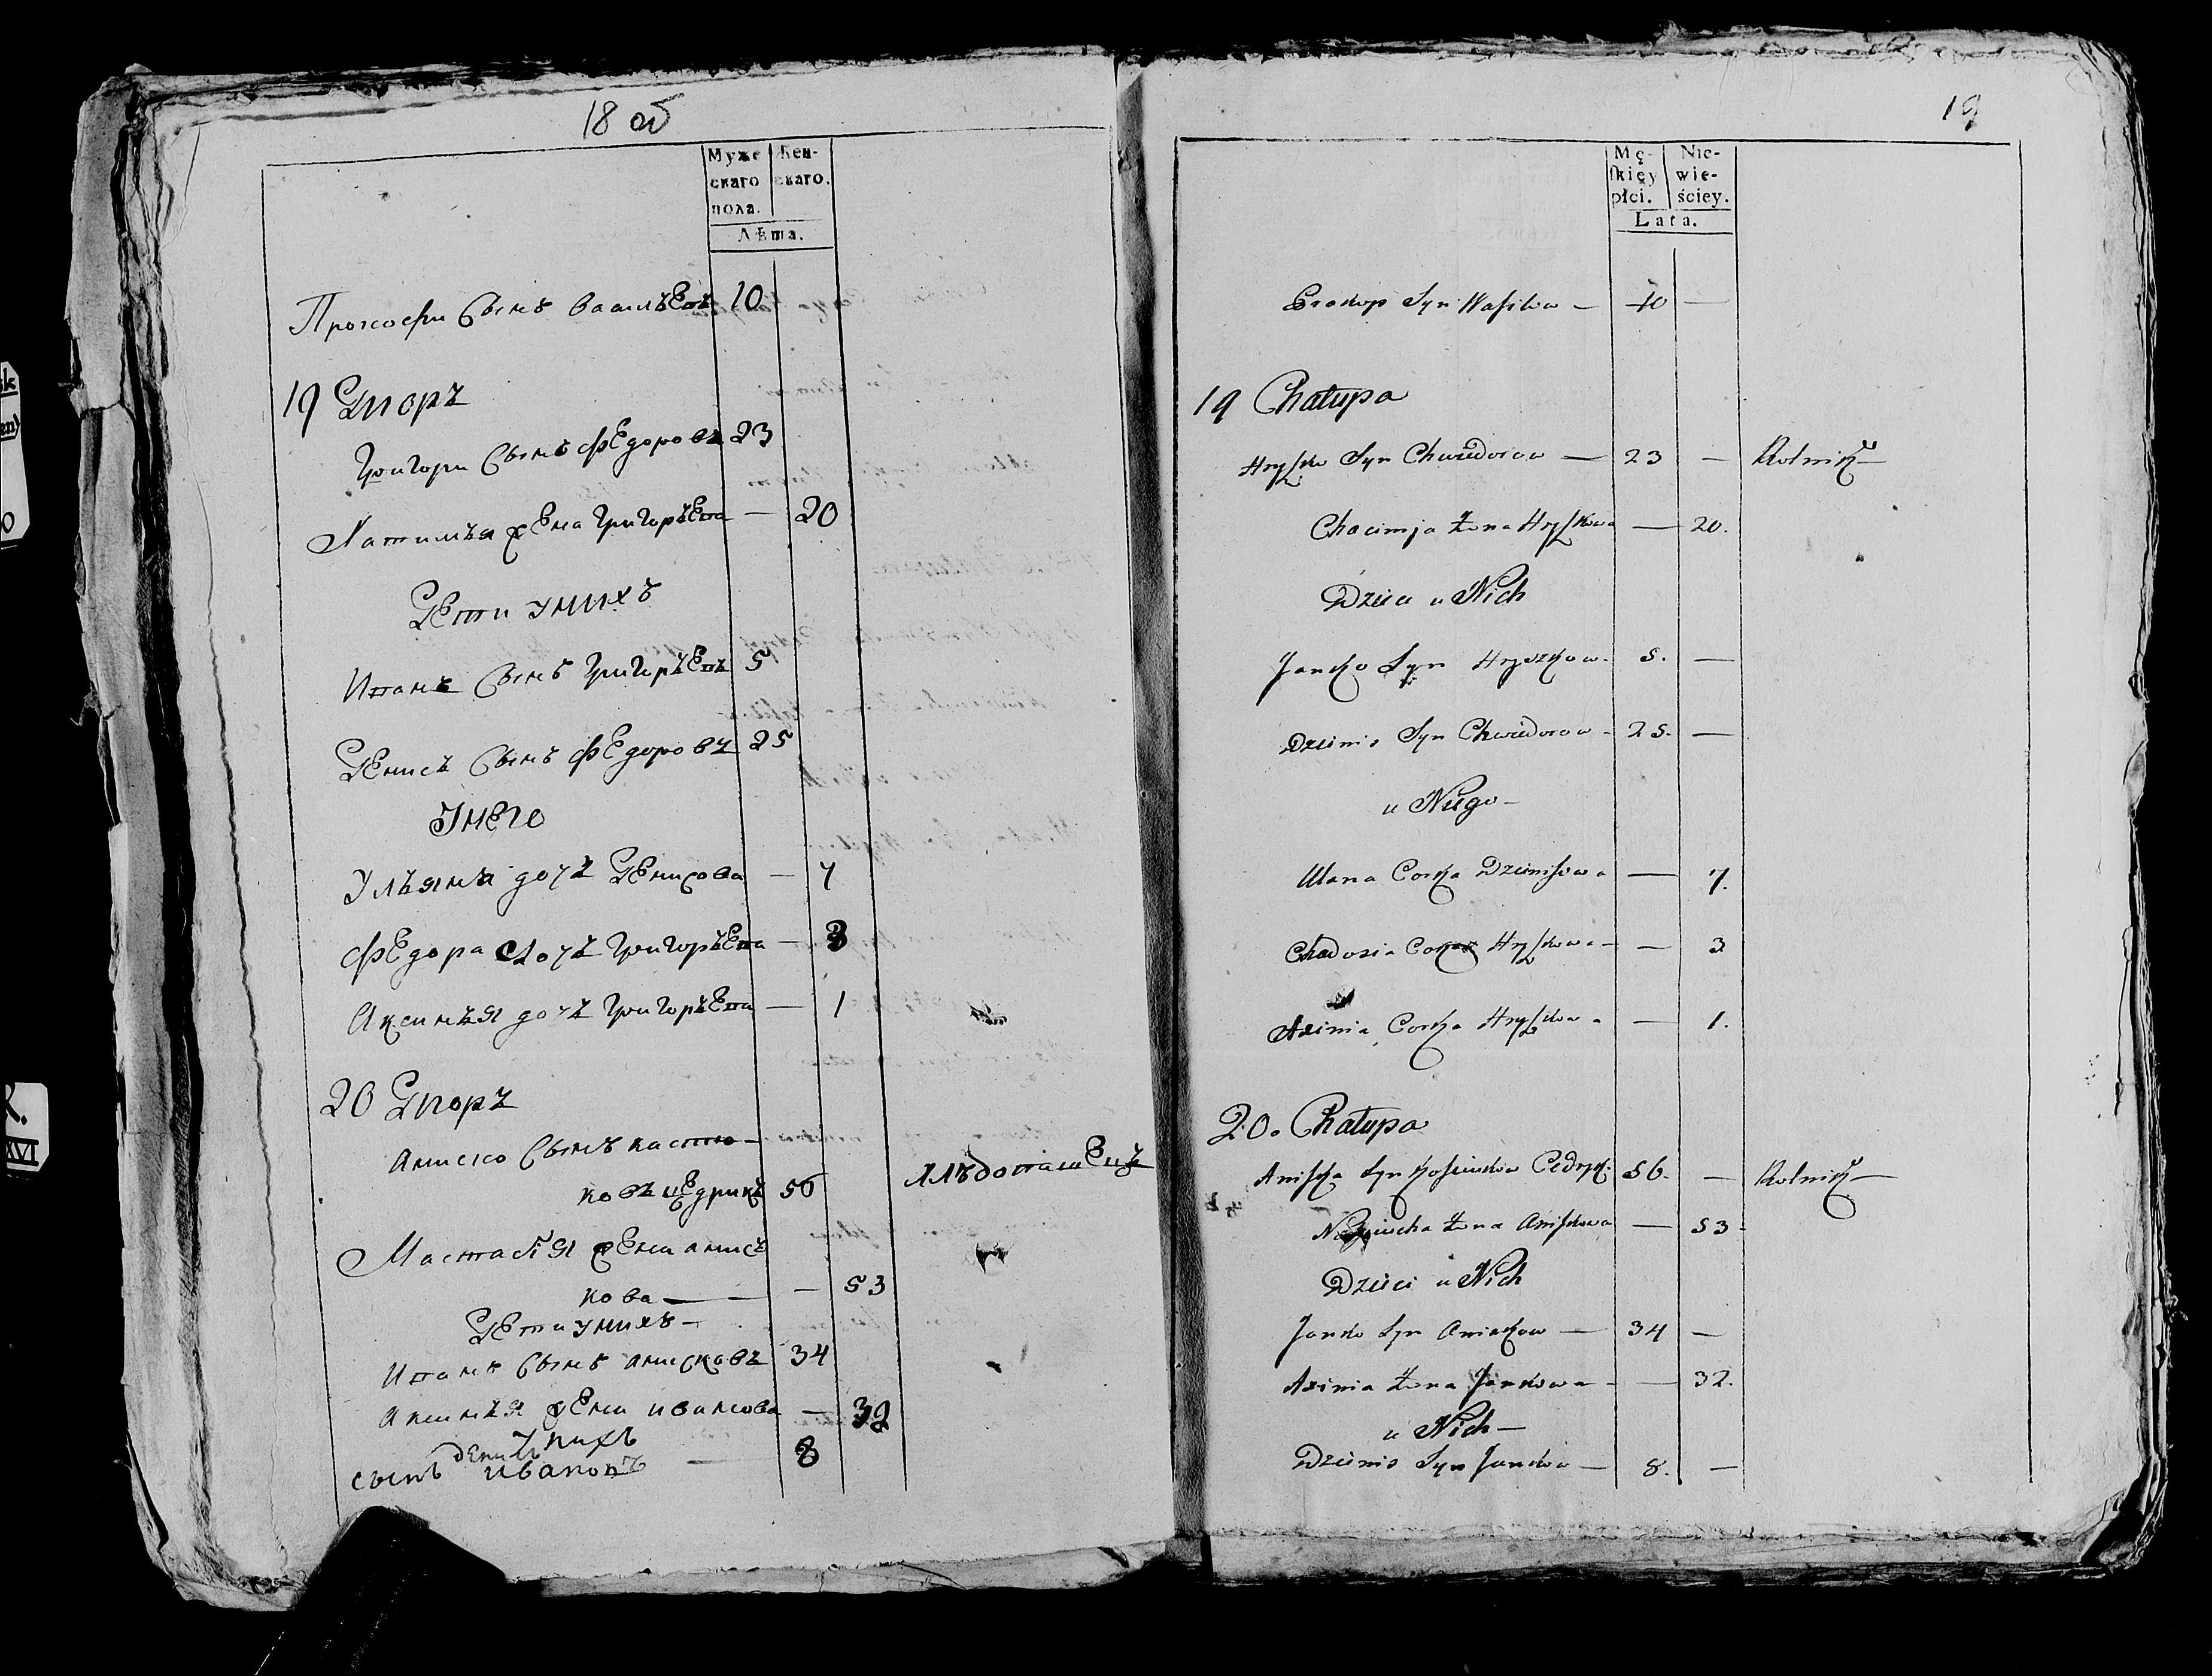 18 об
Муже Жен-
скаго скаго.
пола.
Лѣта.
Прокофи Сынъ васильЕвъ 10
19 Дворъ
Григори Сынъ фЕдоровъ 23
Катинья жЕна ГригорьЕва — 20
ДЕти у нихъ
Иванъ Сынъ ГригорьЕвъ 5
ДЕнисъ Сынъ фЕдоровъ 25
У нЕго
Ульяна дочь ДЕнисова — 7
фЕдора дочь ГригорьЕва — 3
Аксинья дочь ГригорьЕва — 1
20 Дворъ
Аниско Сынъ касто-
ковъ цЕдрикъ 56
Настасія жЕна анисъ
кова — — 53
ДЕти у нихъ —
Иванъ Сынъ анисковъ 34
Аксинья жЕна иванова — 32
У нихъ
дЕнисъ
сынъ ивановъ — 8
19
Mę- Nie-
ſkięy wie-
płci. ściey.
Lata.
Prokop Syn Waſilow — 10 —
19 Chałupa
Hryſzko Syn Chwiedorow — 23 — Rolnik —
Chocimja żona Hryſzkowa — 20.
Dzieci u Nich
Janko Syn Hryszkow — 5. —
Dzienis Syn Chwiedorow — 25. —
u Niego —
Ulana Corka Dzieniſowa — 7.
Chadosia Corka Hryſzkowa — — 3
Axinia Corka Hryſzkowa — 1.
20. Chałupa
Aniſko Syn Cedryk: 56. — Rolnik —
żona Aniſkowa — 53 -
Dzieci u Nich
Janko Syn Aniskow — 34 —
Axinia żona Jankowa — — 32.
u Nich —
Dzienis Syn Jankow — 8. —